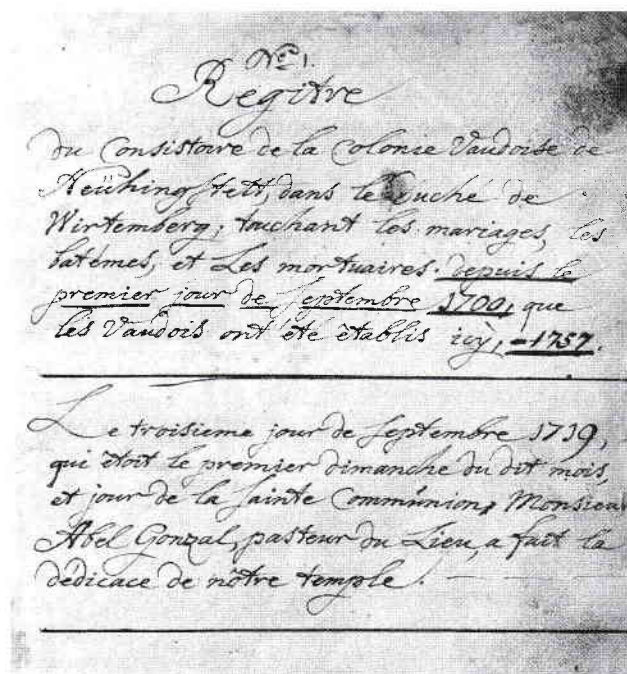 No 1.
Regitre
du Consistoire de la Colonie Vaudoise de
Neühingstett, dans le Duché de
Wirtemberg, touchant les mariages, les
batémes, et Les mortuaires. depuis le
premier jour de Septembre 1700, que
les Vaudois ont été ètablis icÿ, - 1757.
Le troisieme jour de Septembre 1739,
qui ètoit le premier dimanche du dit mois,
et jour de la Sainte Commúnion, Monsieur
Abel Gonzal, pasteur du Lieu, a fait la
dédicace de nôtre temple.